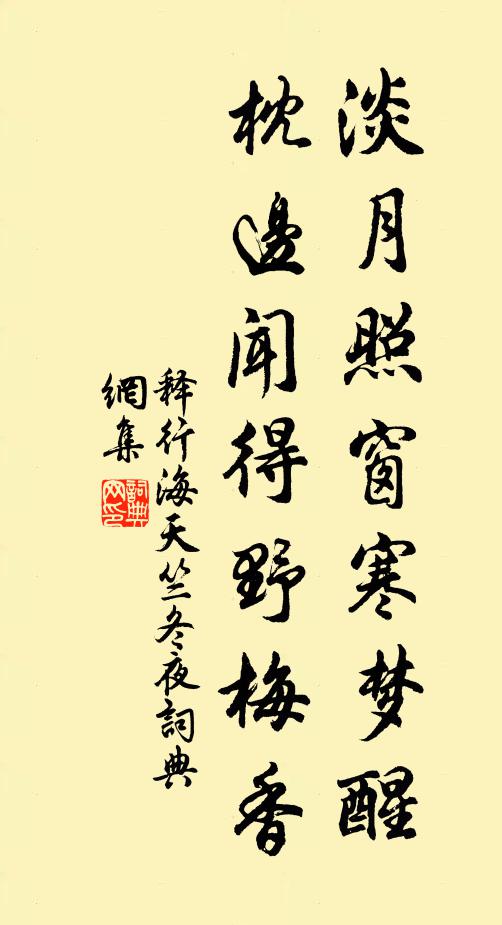 淡月照窗寒梦醒
枕邊闻得野梅香
释行海天竺冬夜詞典
網集
詞典
网印